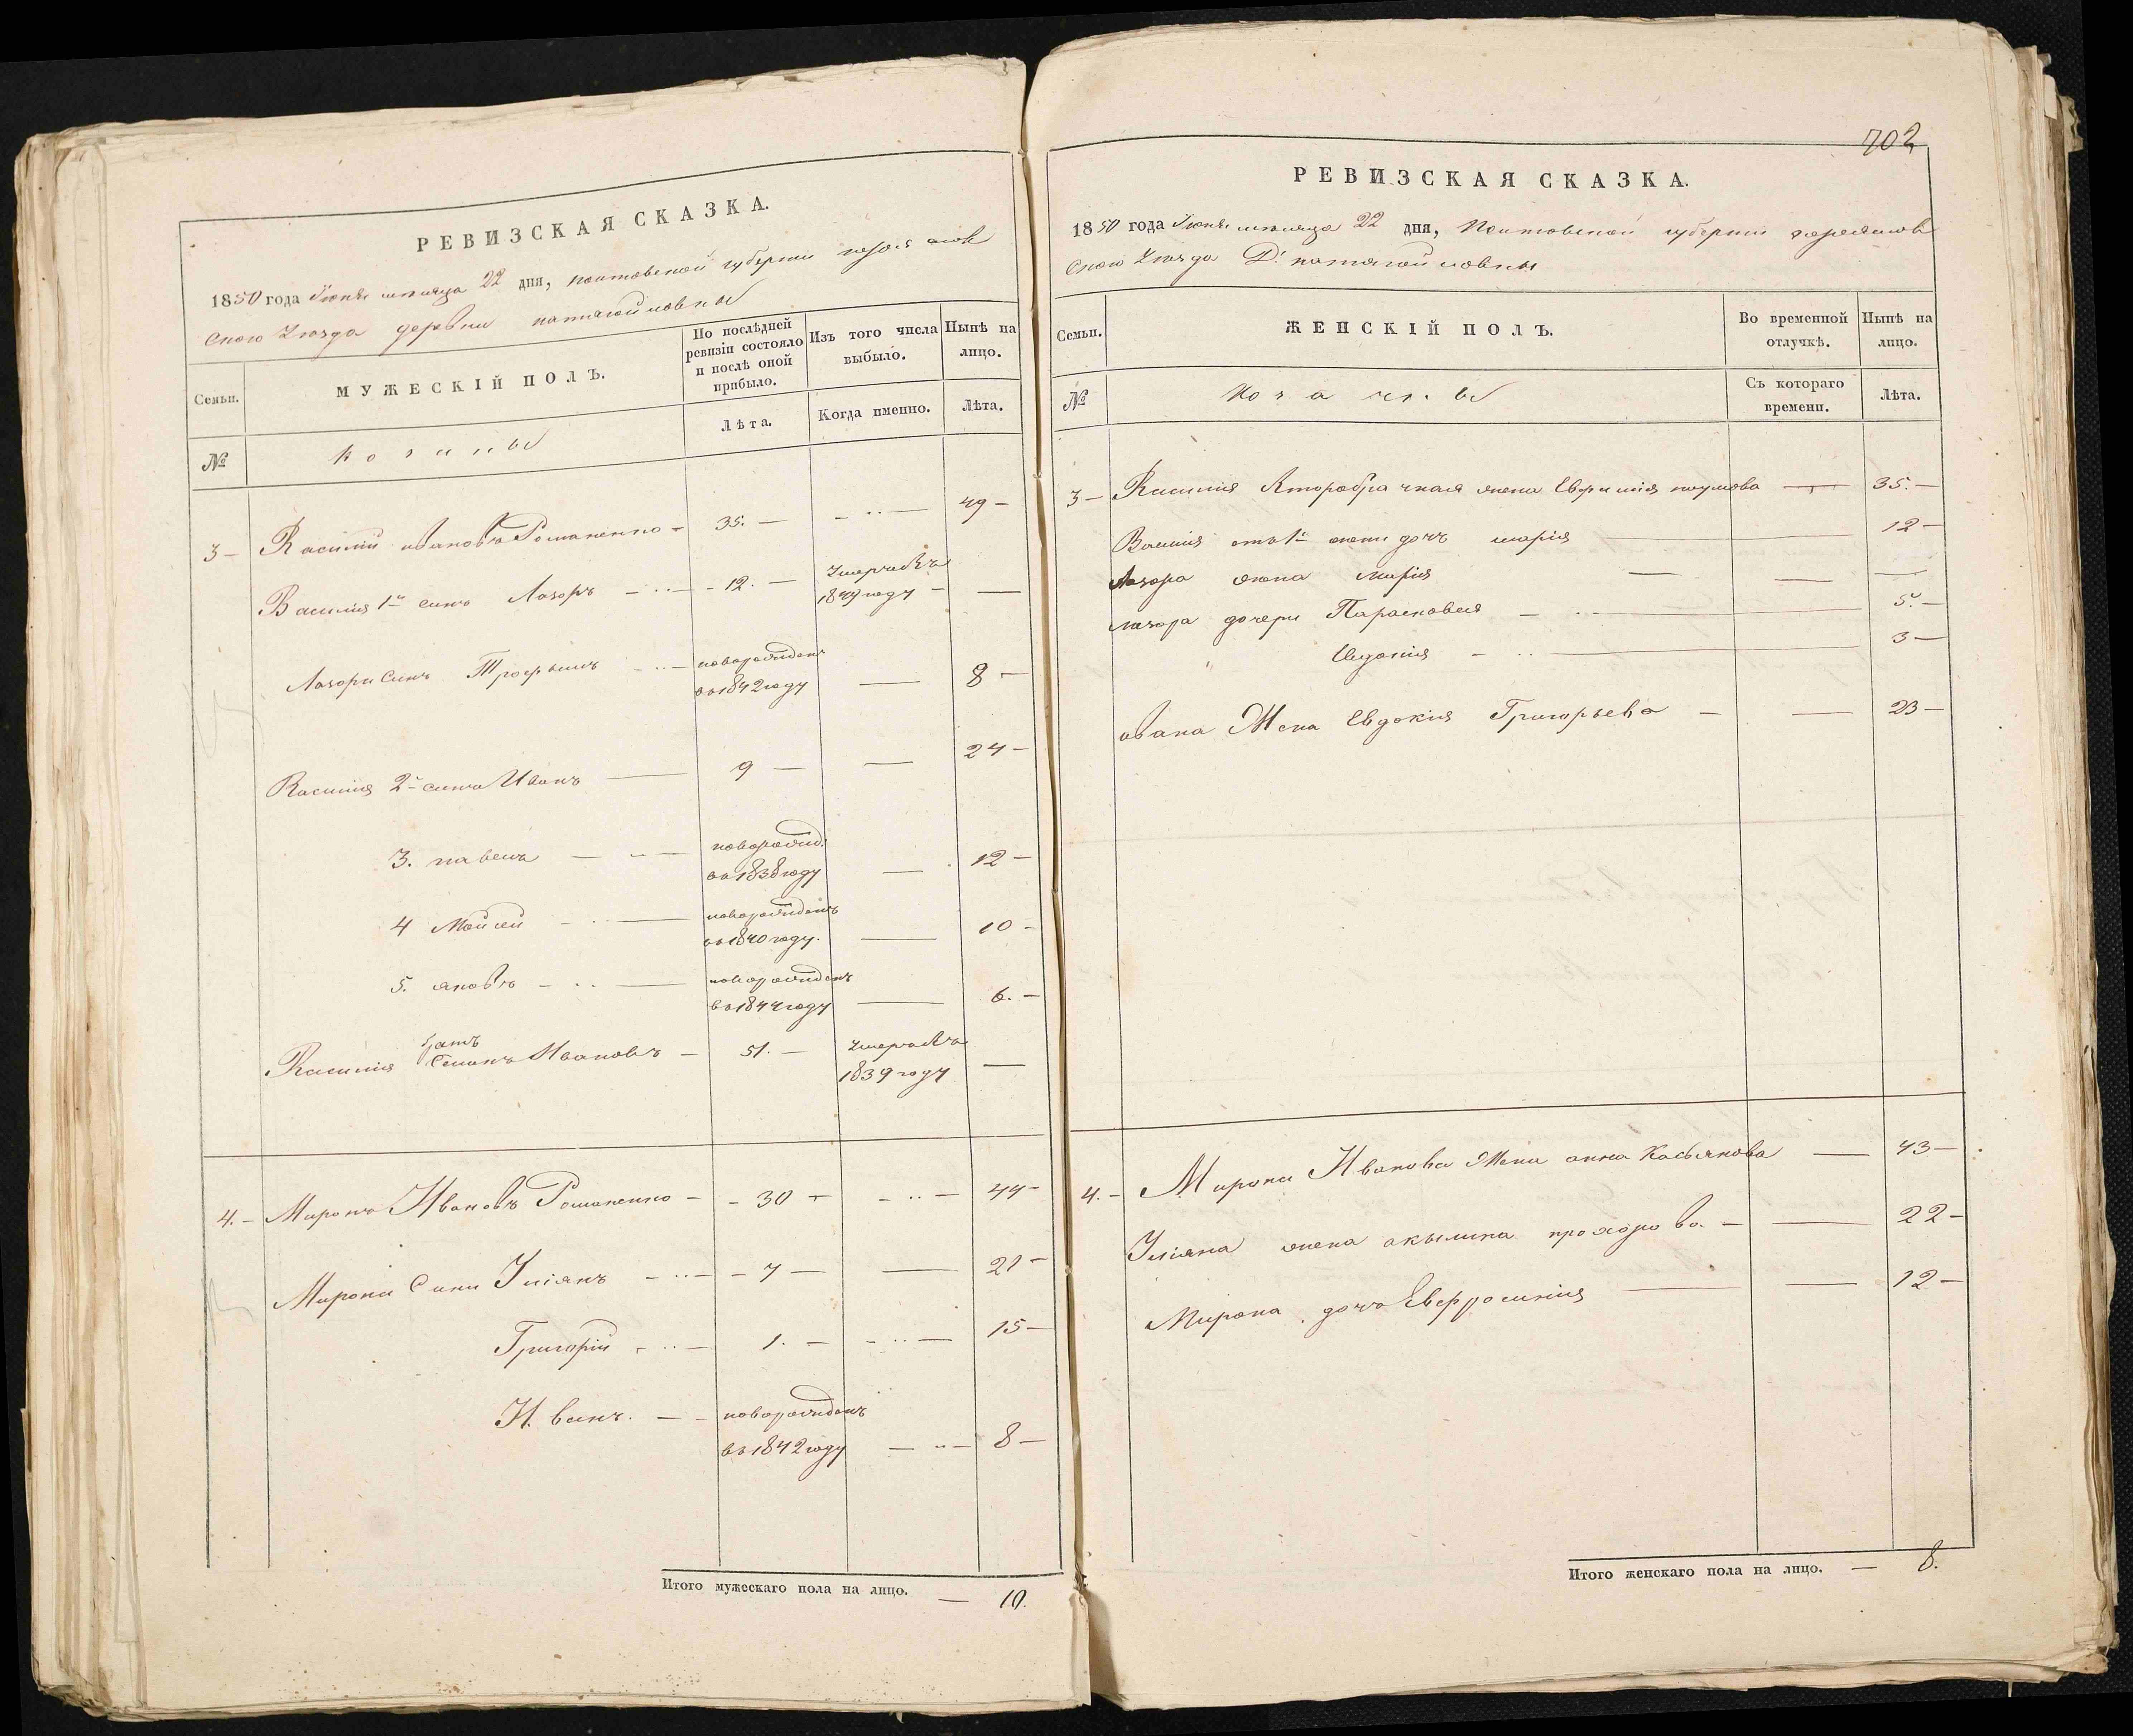 РЕВИЗСКАЯ СКАЗКА.
1850 года Июня месяца 22 дня, Полтавской губерніи переяслов
ского Уезда деревни
Семьи.
МУЖЕСКІЙ ПОЛЪ.
По послѣдней ревизіи состояло и послѣ оной прибыло.
Изъ того числа выбыло.
Нынѣ на лицо.
№
Козаки
Лѣта.
Когда именно.
Лѣта.
3 — Василий ивановъ Романенко — 35. — — 49 —
Василия 1й синъ Лазоръ — 12. — Умеръ въ
1849 году — —
Лазоря Синъ Трофимъ — новорожденъ
въ 1842 году — 8 —
Василия 2й синъ Иванъ — 9 — — 24 —
3. павелъ — новорожд.
въ 1838 году — 12 —
4 Мойсей — новорожденъ
въ 1840 году. — 10 —
5. яковъ — новорожденъ
въ 1844 году — 6. —
Василия братъ Семенъ Ивановъ — 51. — Умеръ въ
1839 году —
4. — Миронъ Ивановъ Романенко — 30 — — 44 —
Мирона Сини Уліянъ — 7 — — 21 —
Григорій — 1. — — 15 —
Иванъ. — новорожденъ
въ 1842 году — 8 —
Итого мужескаго пола на лицо. — 10.
702
РЕВИЗСКАЯ СКАЗКА.
1850 года Июня месяца 22 дня, Полтавской губерніи переяслов
ского Уезда Д.
Семьи.
ЖЕНСКІЙ ПОЛЪ.
Во временной отлучкѣ.
Нынѣ на лицо.
№
Съ котораго времени.
Лѣта.
3 — Василия Второбрачная жена Евфимия наумова — 35. —
Василия отъ 1й жени дочъ мария — 12 —
Лазора жена мария — — —
лазора дочери Парасковея — 5. —
" — 3 —
ивана Жена Евдокия Григорьева — — 23 —
4. — Мирона Иванова Жена анна Касьянова — 43 —
Уліяна жена акылина прохорова. — — 22 —
Мирона дочъ Евфросиния — — 12 —
Итого женскаго пола на лицо. — 8.